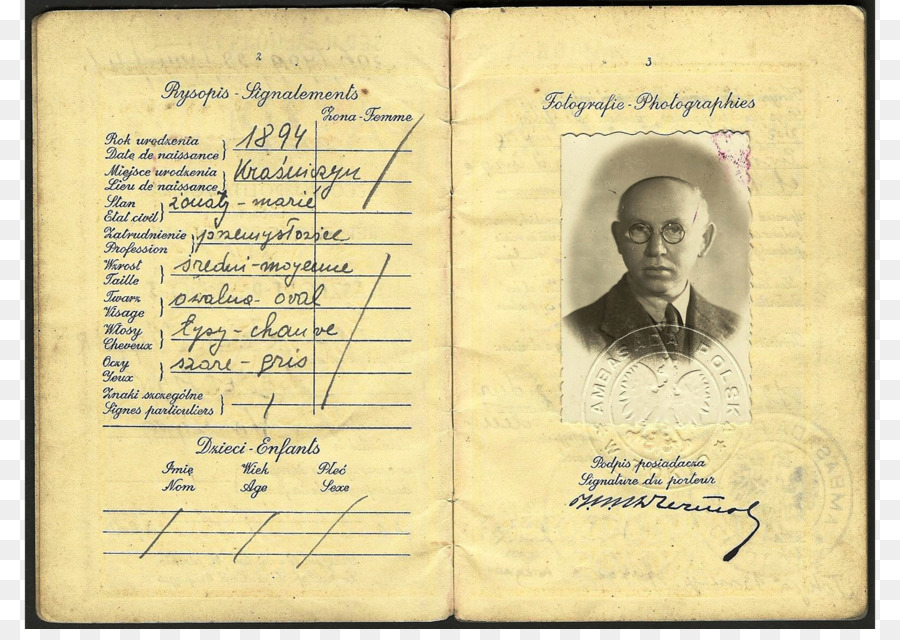 2
Rysopis - Signalements
Żona - Femme
Rok urodzenia
Date de naissance
1894
Miejsce urodzenia
Lieu de naissance
Kraśniczyn
Stan
Etat civil
żonaty - marié
Zatrudnienie
Profession
przemysłowiec
Wzrost
Taille
średni - moyenne
Twarz
Visage
owalna - oval
Włosy
Cheveux
łysy - chauve
Oczy
Yeux
szare - gris
Znaki szczególne
Signes particuliers
Dzieci - Enfants
Imię Wiek Płeć
Nom Age Sexe
3
Fotografie - Photographies
AMBASADA POLSKA
Podpis posiadacza
Signature du porteur